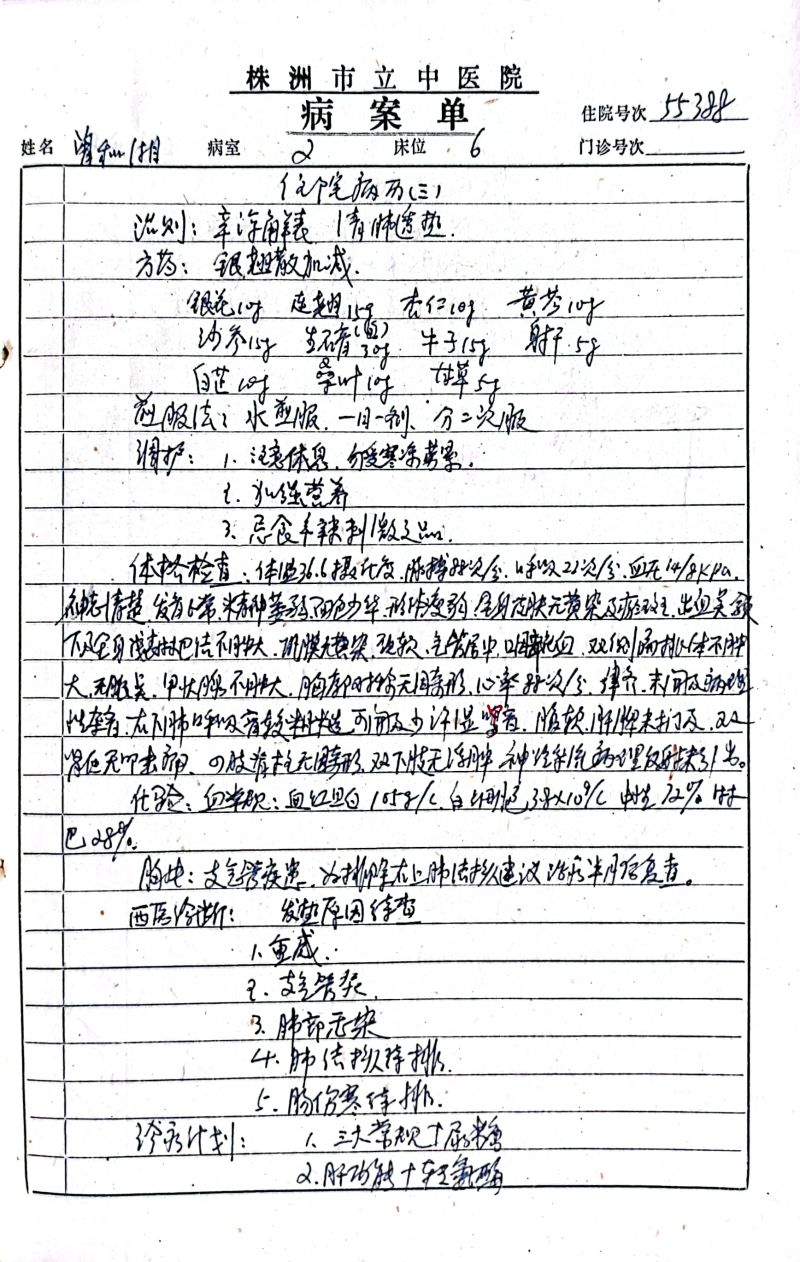 株洲市立中医院
病案单
住院号次 55388
姓名 病室 2 床位 6 门诊号次
住院病历(三)
治则：辛凉解表 清肺透热.
方药：银翘散加减.
银花10g 连翘15g 杏仁10g 黄芩10g
沙参15g 生石膏(包)30g 牛子15g 射干5g
白芷10g 桑叶10g 甘草5g
煎服法：水煎服．一日一剂、分二次服
调护：1. 注意休息，勿受寒凉劳累.
2. 加强营养
3. 忌食辛辣刺激之品.
体格检查：体温36.6摄氏度，脉搏88次/分．呼吸22次/分．血压14/8KPa.
神志清楚，发育正常，精神萎弱，面色少华，形体瘦弱，全身皮肤无黄染及瘀斑，出血点，颌
下及全身浅表淋巴结不肿大．巩膜无黄染，颈软，气管居中，咽充血．双侧扁桃体不肿
大，无脓点，甲状腺不肿大，胸部对称无畸形，心率88次/分，律齐，未闻及病理
性杂音．右下肺呼吸音较粗糙 可闻及少许湿啰音．腹软，肝脾未扪及，双
肾区无叩击痛，四肢脊柱无畸形，双下肢无浮肿 神经系统病理反射未引出。
化验：血常规：血红蛋白105g/L 白细胞3.8×10⁹/L 中性72% 淋
巴28%.
胸片：支气管疾患，为排除右上肺结核建议治疗半月后复查。
西医诊断： 发热原因待查
1. 重感．
2. 支气管炎.
3. 肺部感染
4. 肺结核待排.
5. 肠伤寒待排.
诊疗计划： 1. 三大常规+尿糖
2. 肝功能+转氨酶